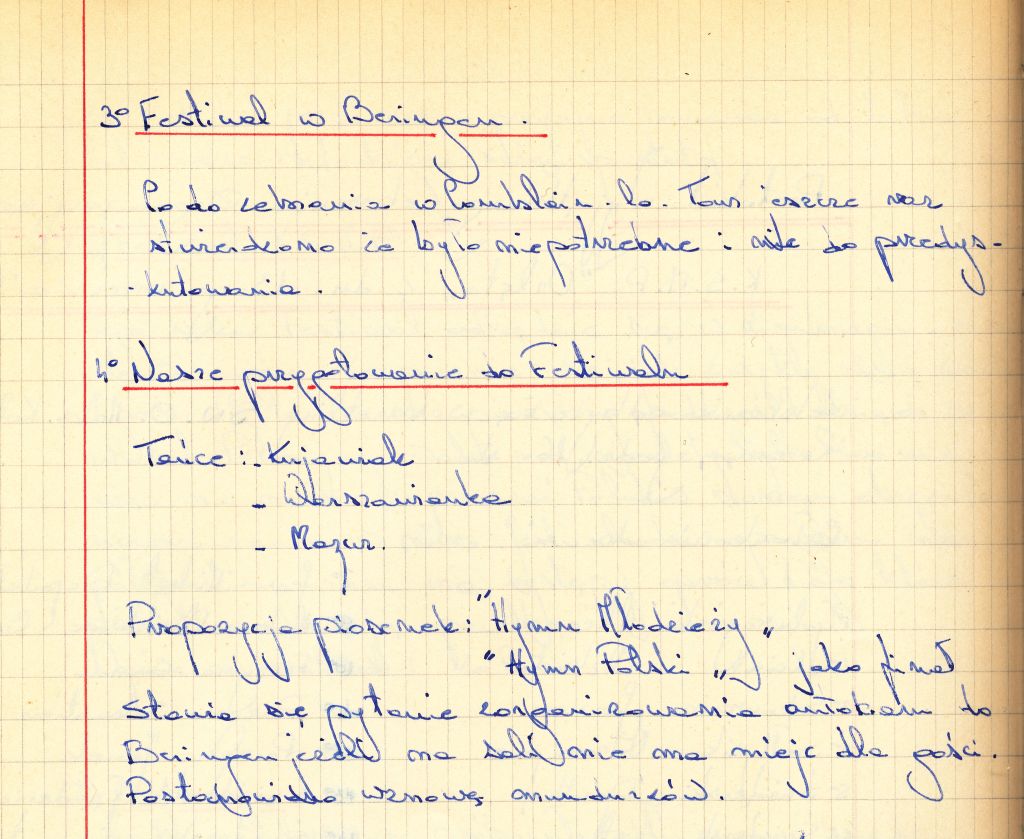 3° Festiwal w Beringen.
Co do zebrania w Comblain-la-Tour jeszcze raz
stwierdzono że było niepotrzebne i nic do przedys-
kutowania.
4° Nasze przygotowanie do Festiwalu
Tańce : - Kujawiak
- Warszawianka
- Mazur.
Propozycja piosenek: "Hymn Młodzieży"
"Hymn Polski" jako finał
Stawia się pytanie zorganizowania autokaru do
Beringen jeżeli na sali nie ma miejc dla gości.
wznowę mundurków.